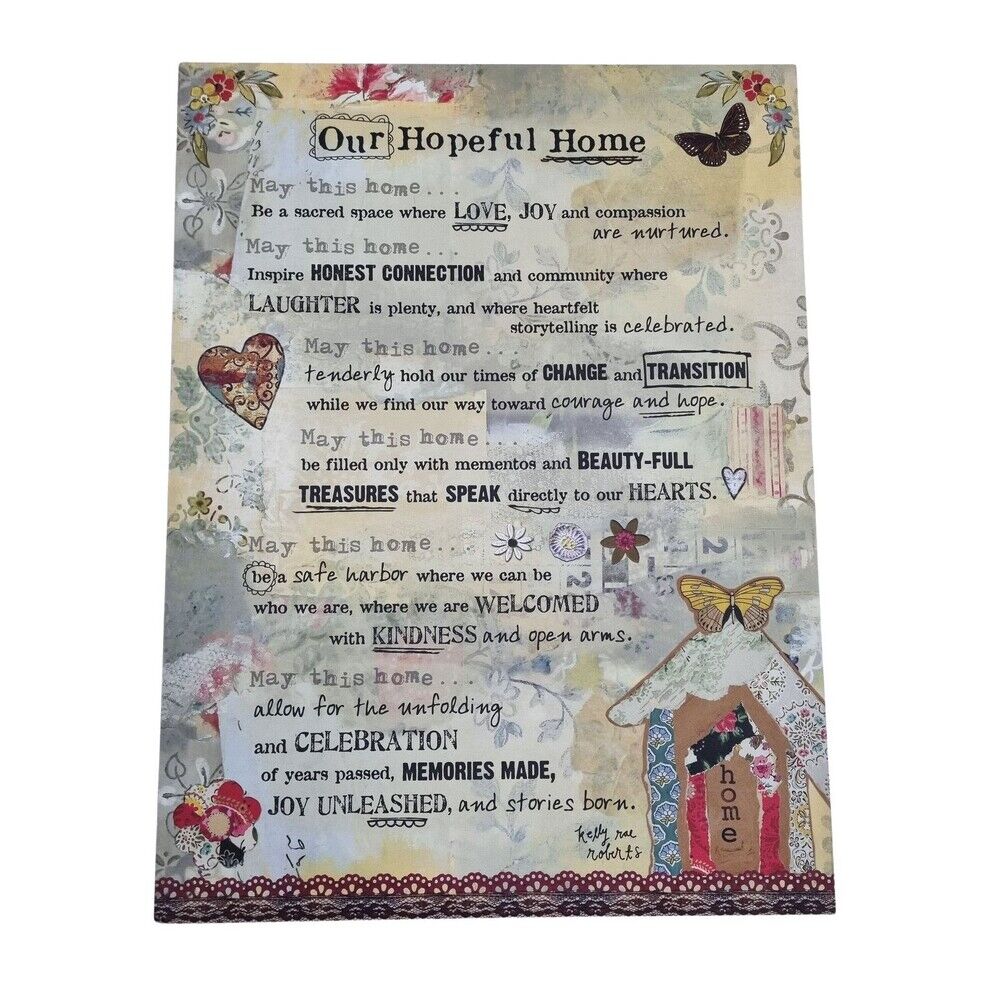 Our Hopeful Home
May this home...
Be a sacred space where LOVE, JOY and compassion
are nurtured.
May this home...
Inspire HONEST CONNECTION and community where
LAUGHTER is plenty, and where heartfelt
storytelling is celebrated.
May this home...
tenderly hold our times of CHANGE and TRANSITION
while we find our way toward courage and hope.
May this home....
be filled only with mementos and BEAUTY-FULL
TREASURES that SPEAK directly to our HEARTS.
May this home....
be a safe harbor where we can be
who we are, where we are WELCOMED
with KINDNESS and open arms.
May this home...
allow for the unfolding
and CELEBRATION
of years passed, MEMORIES MADE,
JOY UNLEASHED, and stories born.
kelly rae
roberts
home